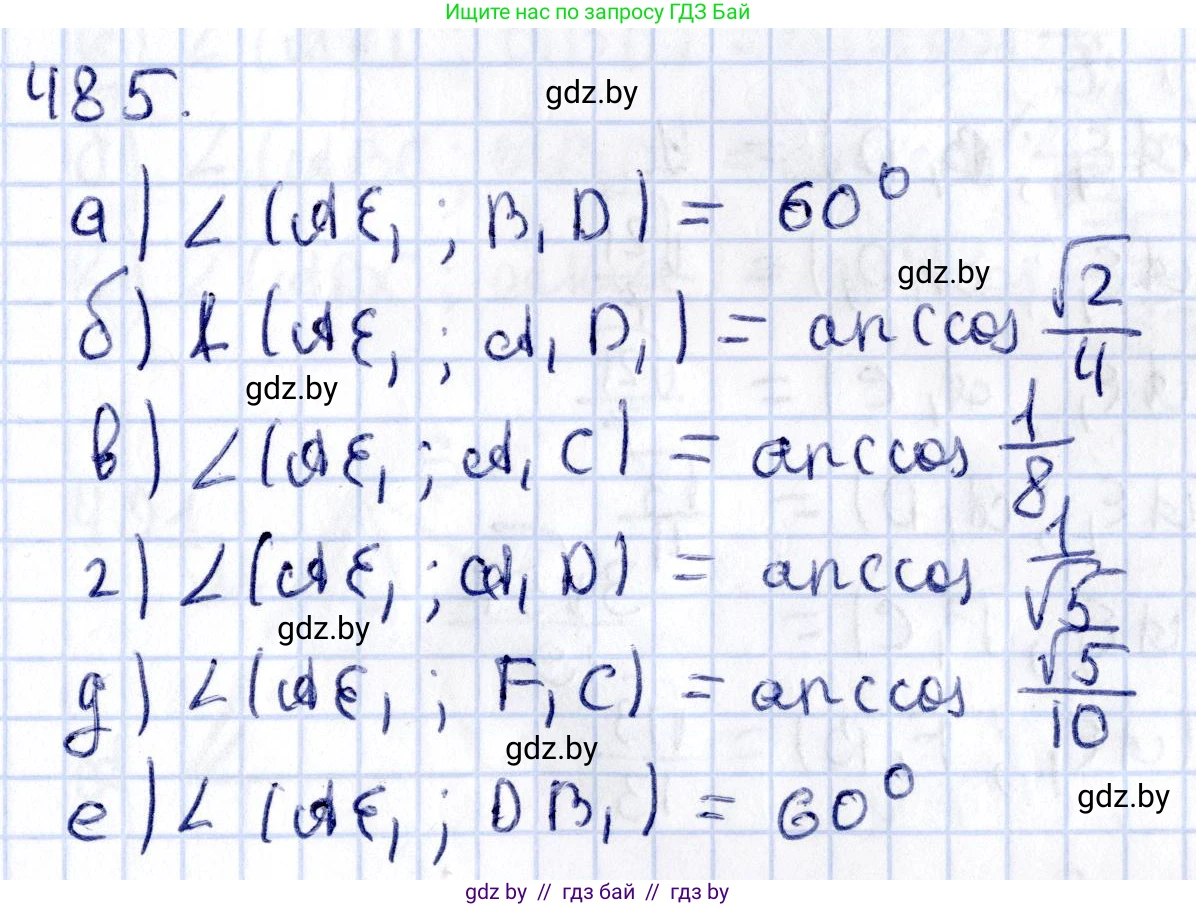 Ищите нас по запросу ГДЗ Бай
485.
gdz.by
а) ∠(AE₁; B₁D) = 60°
gdz.by
б) ∠(AE₁; A₁D₁) = arccos √2/4
gdz.by
в) ∠(AE₁; A₁C) = arccos 1/8
г) ∠(AE₁; A₁D) = arccos 1/√5
gdz.by
д) ∠(AE₁; F₁C) = arccos √5/10
gdz.by
е) ∠(AE₁; DB₁) = 60°
gdz.by
gdz.by // гдз бай // гдз by